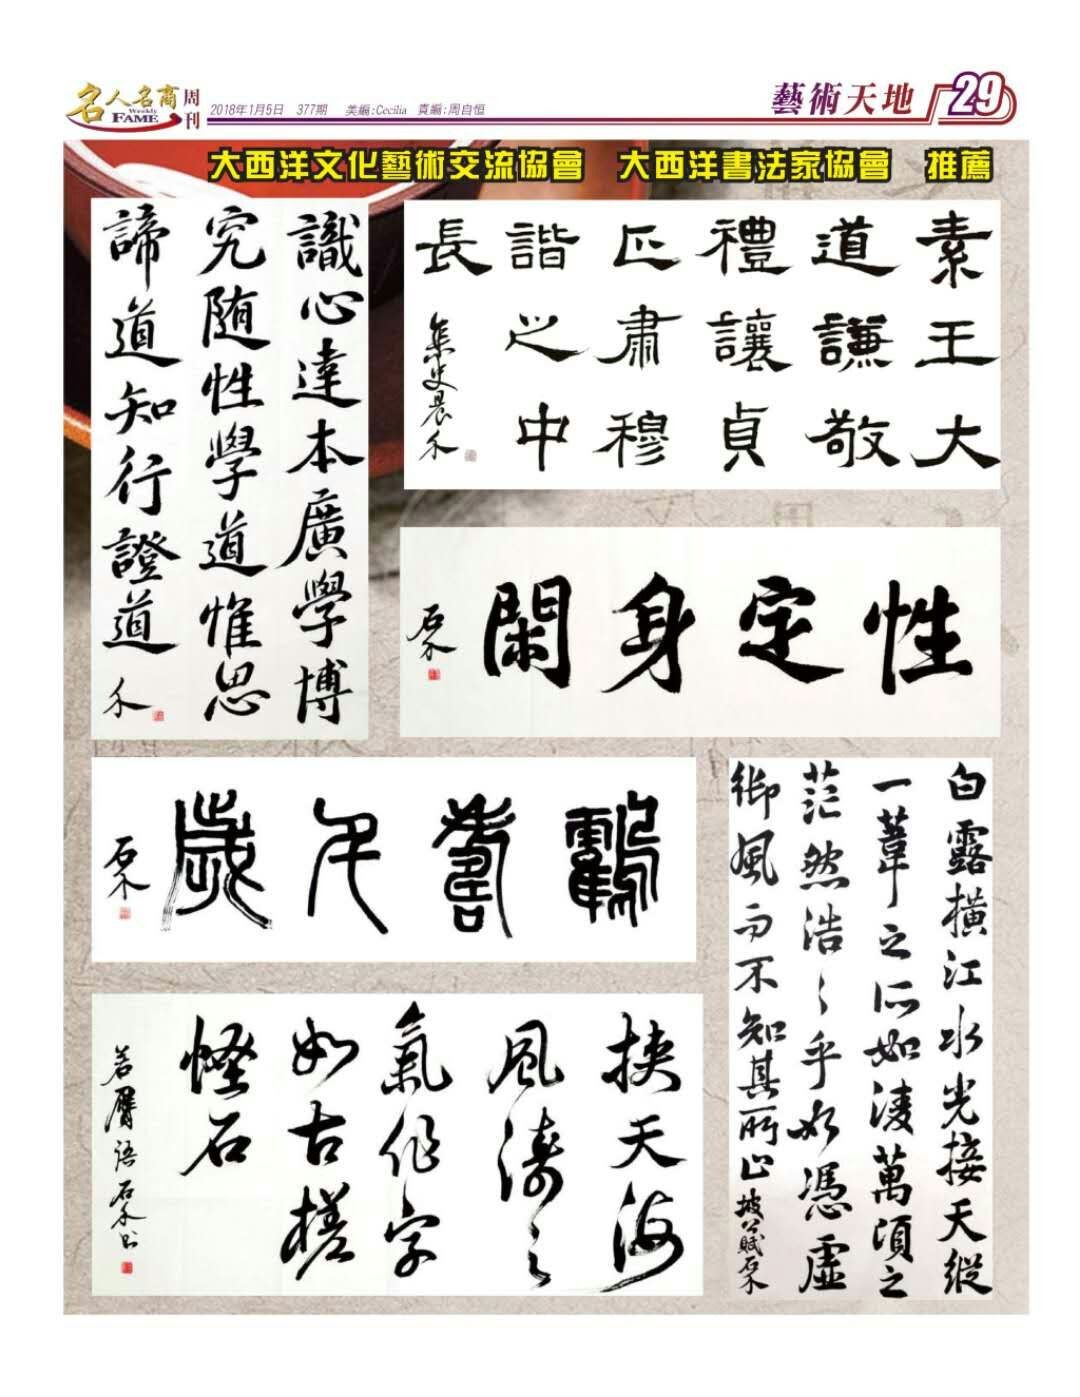 名人名商周刊
Weekly
FAME
2018年1月5日 377期 美編:Cecilia 責編:周自恒
藝術天地 29
大西洋文化藝術交流協會 大西洋書法家協會 推薦
識心達本廣學博
究随性學道惟思
諦道知行證道
禾
素王大
道謙敬
禮讓貞
疋肅穆
諧之中
長
集史晨禾
性定身閑
石禾
鶴壽千歲
石禾
白露橫江水光接天縱
一葦之所如淩萬頃之
茫然浩〻乎如馮虛
御風而不知其所止
坡公賦石禾
挾天海
風濤之
氣作字
如古槎
怪石
若膺語石禾書